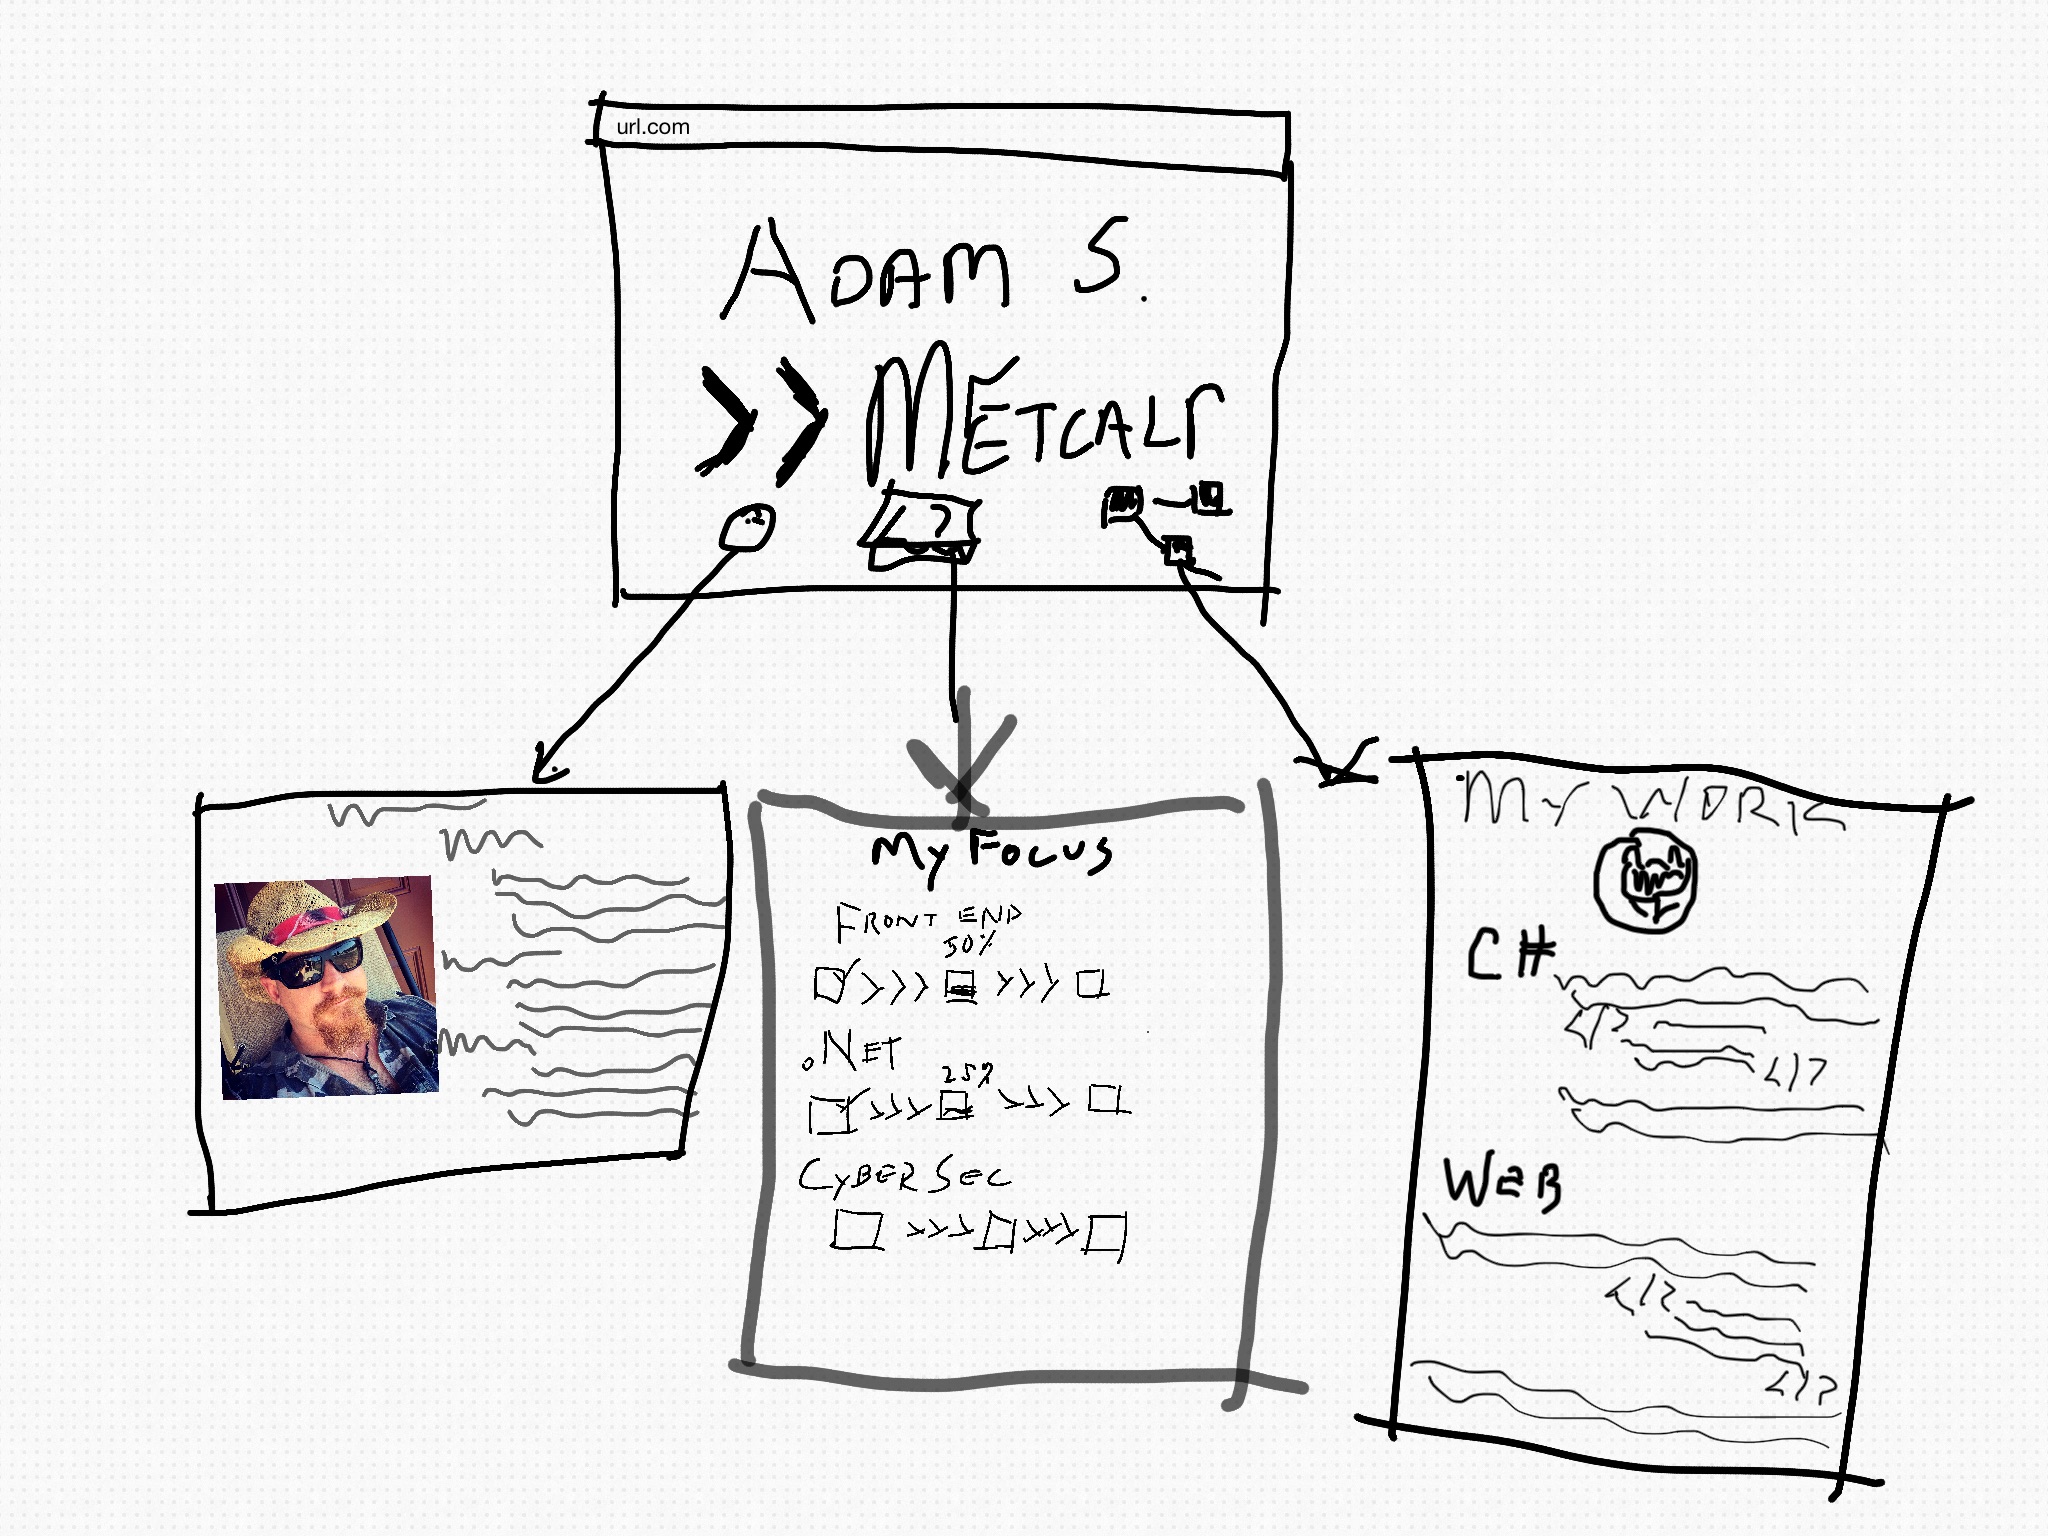 url.com
ADAM S.
>> METCALF
< >
MY FOCUS
FRONT END
50%
>>> >>>
.NET
25%
>>> >>>
CYBER SEC
>>> >>>
MY WORK
C#
</>
</>
WEB
</>
</>